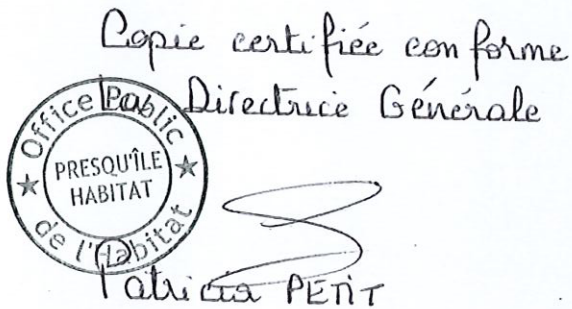 Copie certifiée conforme
La Directrice Générale
Office Public
PRESQU'ÎLE
HABITAT
de l'Habitat
Patricia PETIT